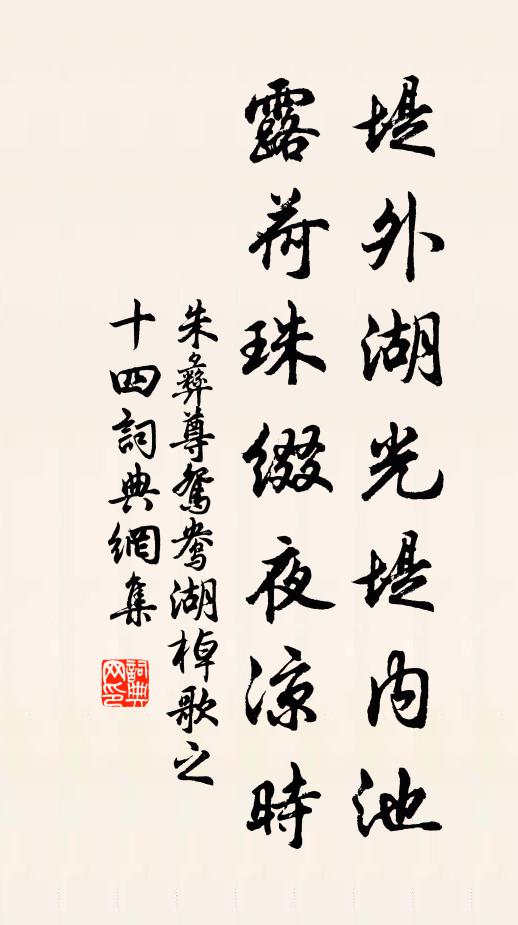 堤外湖光堤內池
露荷珠綴夜凉時
朱彝尊鴛鴦湖棹歌之
十四詞典網集
詞典网印